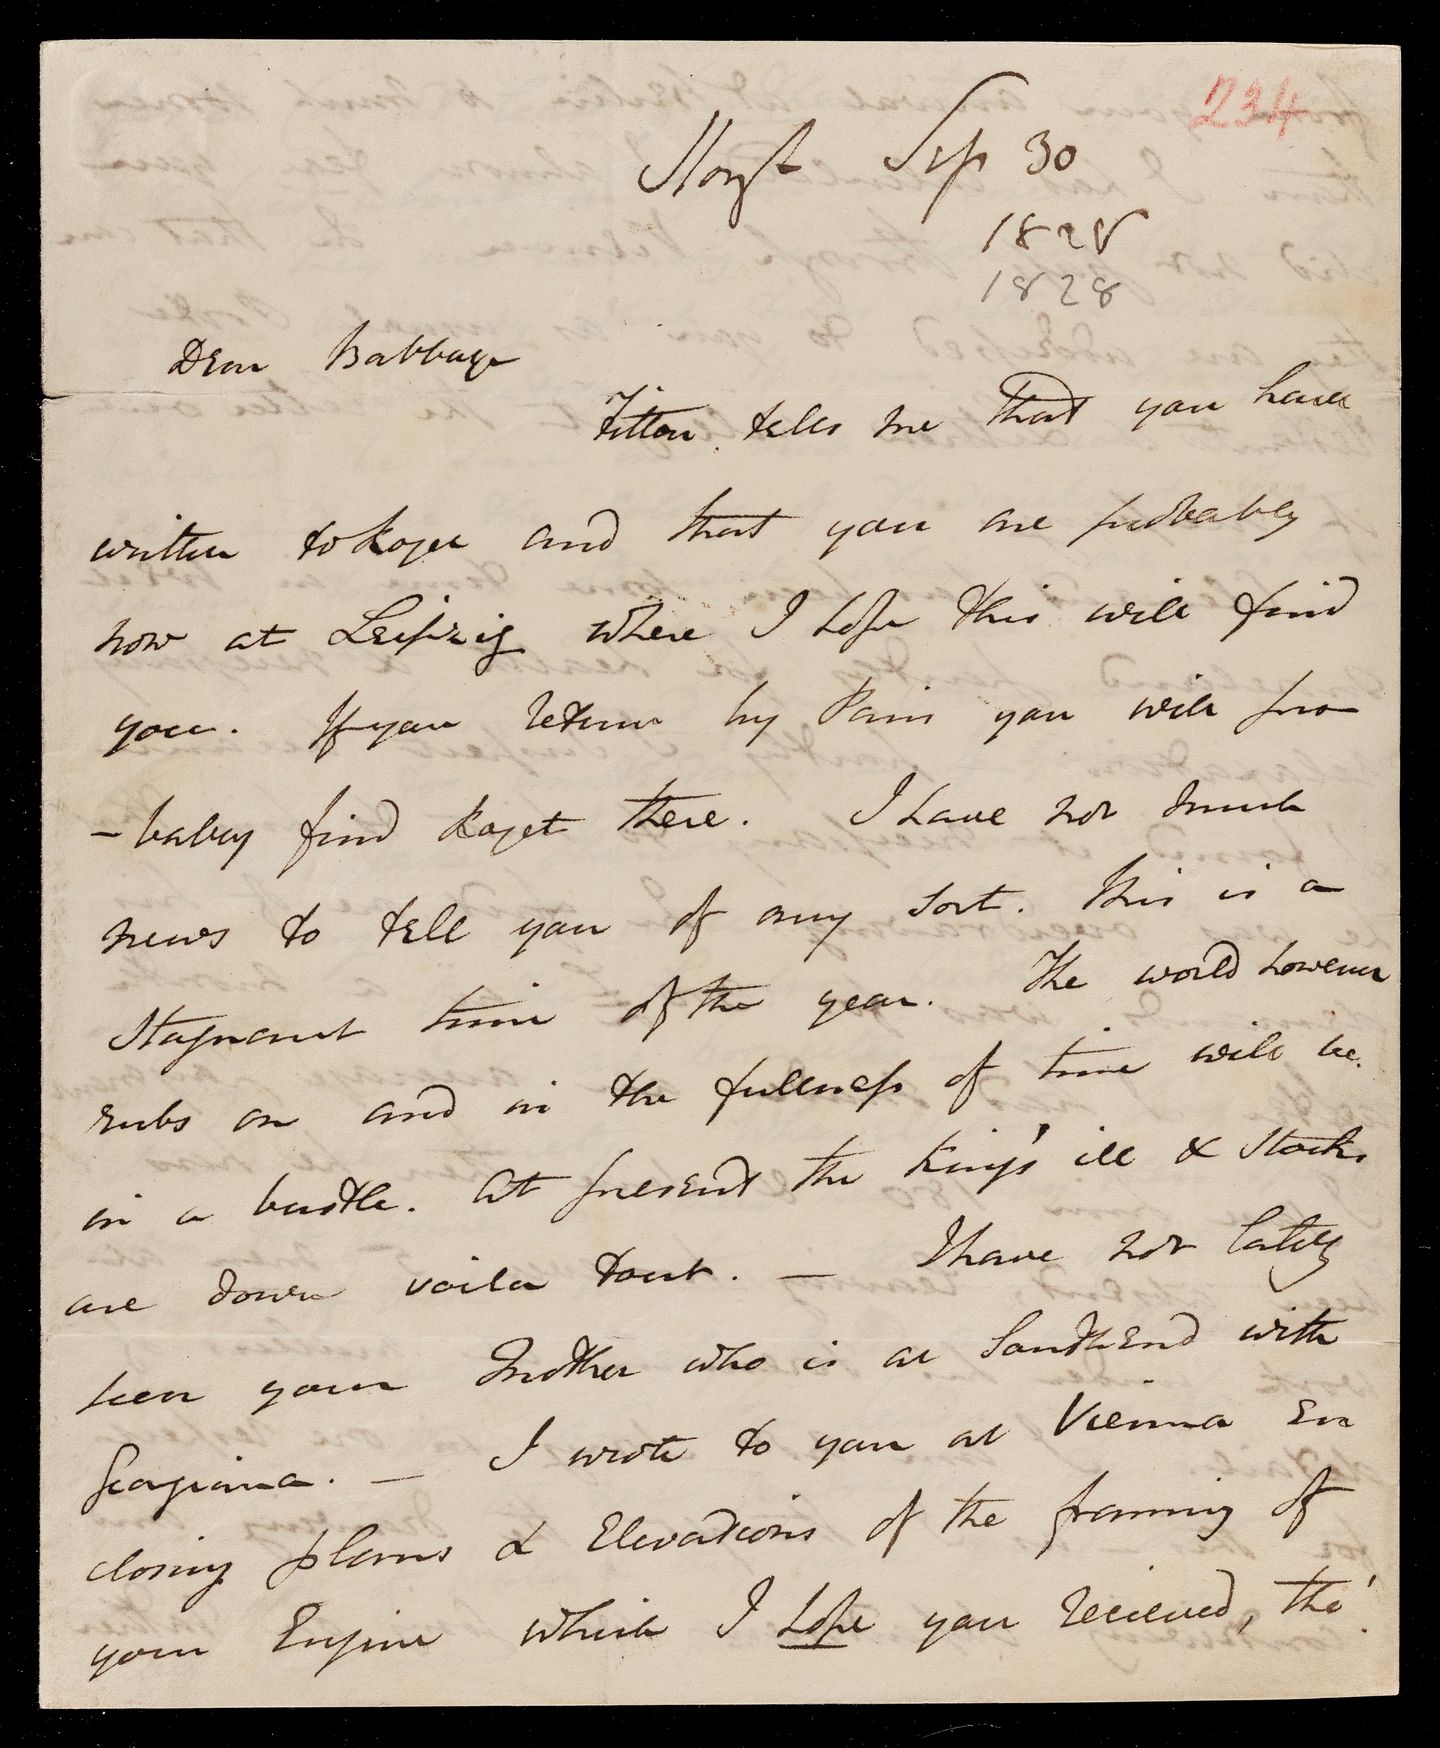 234
Slough Sep 30
1828
1828
Dear Babbage
Fitton tells me that you have
written to Roget and that you are probably
now at Leipzig where I hope this will find
you. If you return by Paris you will pro
-bably find Roget there. I have not much
news to tell you of any sort. This is a
stagnant time of the year. The world however
rubs on and in the fullness of time will be
in a bustle. At present the King's ill & Stocks
are down voila tout. — I have not lately
seen your Mother who is at SouthEnd with
Georgiana. — I wrote to you at Vienna en
closing plans & Elevations of the framing of
your Engine which I hope you recieved, tho'